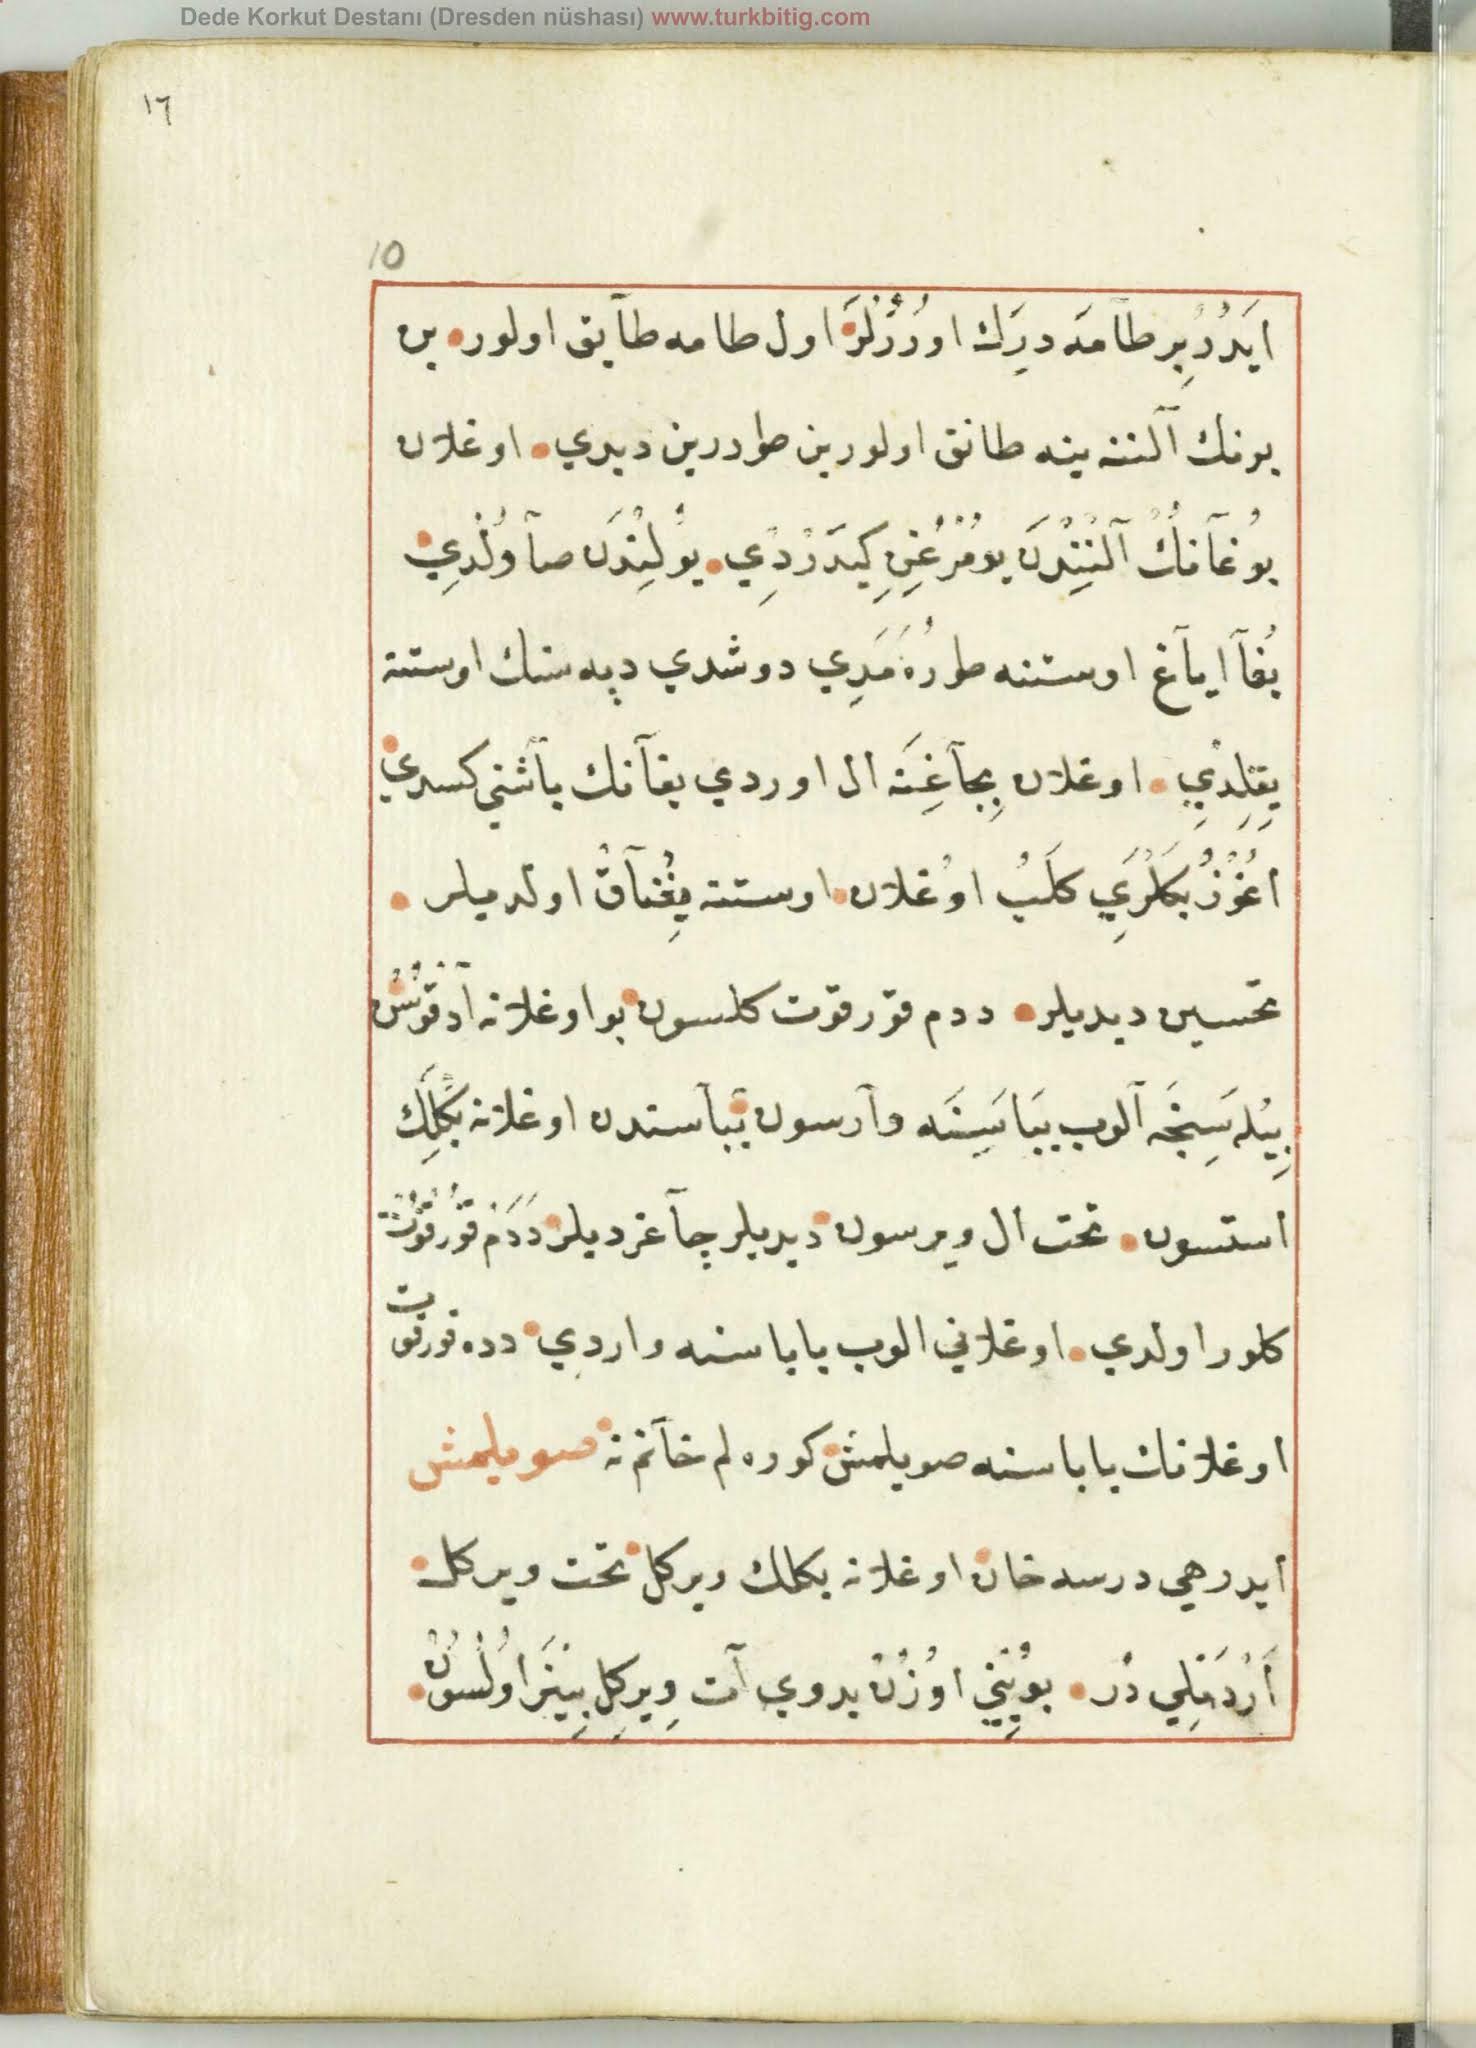 Dede Korkut Destanı (Dresden nüshası) www.turkbitig.com
١٦
15
اَيدُرُ بِر طآمَه دِرَك اورُرْلَرَ اول طامه طآيق اولور بن
بونك آلننه ينه طانق اولورين طورورين ديدي اوغلان
بُوغآنُكْ آلْنِنْدَن يُومْرُغِنِ كِيدَرْدِي يُولِنْدَن صآوُلْدِي
بُغآ اياغ اوستنه طورُهَ مَدِي دوشدي دپه سنك اوستنه
يِقِلِدِي اوغلان بِچآغِنَه ال اوردي بغآنك بآشني كسدي
اغُوزْ بَكْلَرِي كَلَبُ اوُغلان اوستنه يِغْنآقْ اولديلر
تحسين ديديلر ددم قورقوت كلسون بو اوغلانه آد قوسُن
بِيْلَه سِنجَه آلوب بَبَاسِنَه وآرسون بَبآسندن اوغلانه بَكْلِك
استسون تخت ال ويرسون ديديلر چآغرديلر دَدَم قُورقُوت
كلور اولدي اوغلاني الوب باباسنه واردي دده قورقوت
اوغلانك باباسنه صويلمش كوره لم خآنم نه صويلمش
ايدر هي درسه خان اوغلانه بكلك ويركل تخت ويركل
اَرْدَمْلِي دُر بُويْنِي اوُزُنْ بدوي آت وِيركِل بِينَر اوُلْسُونْ